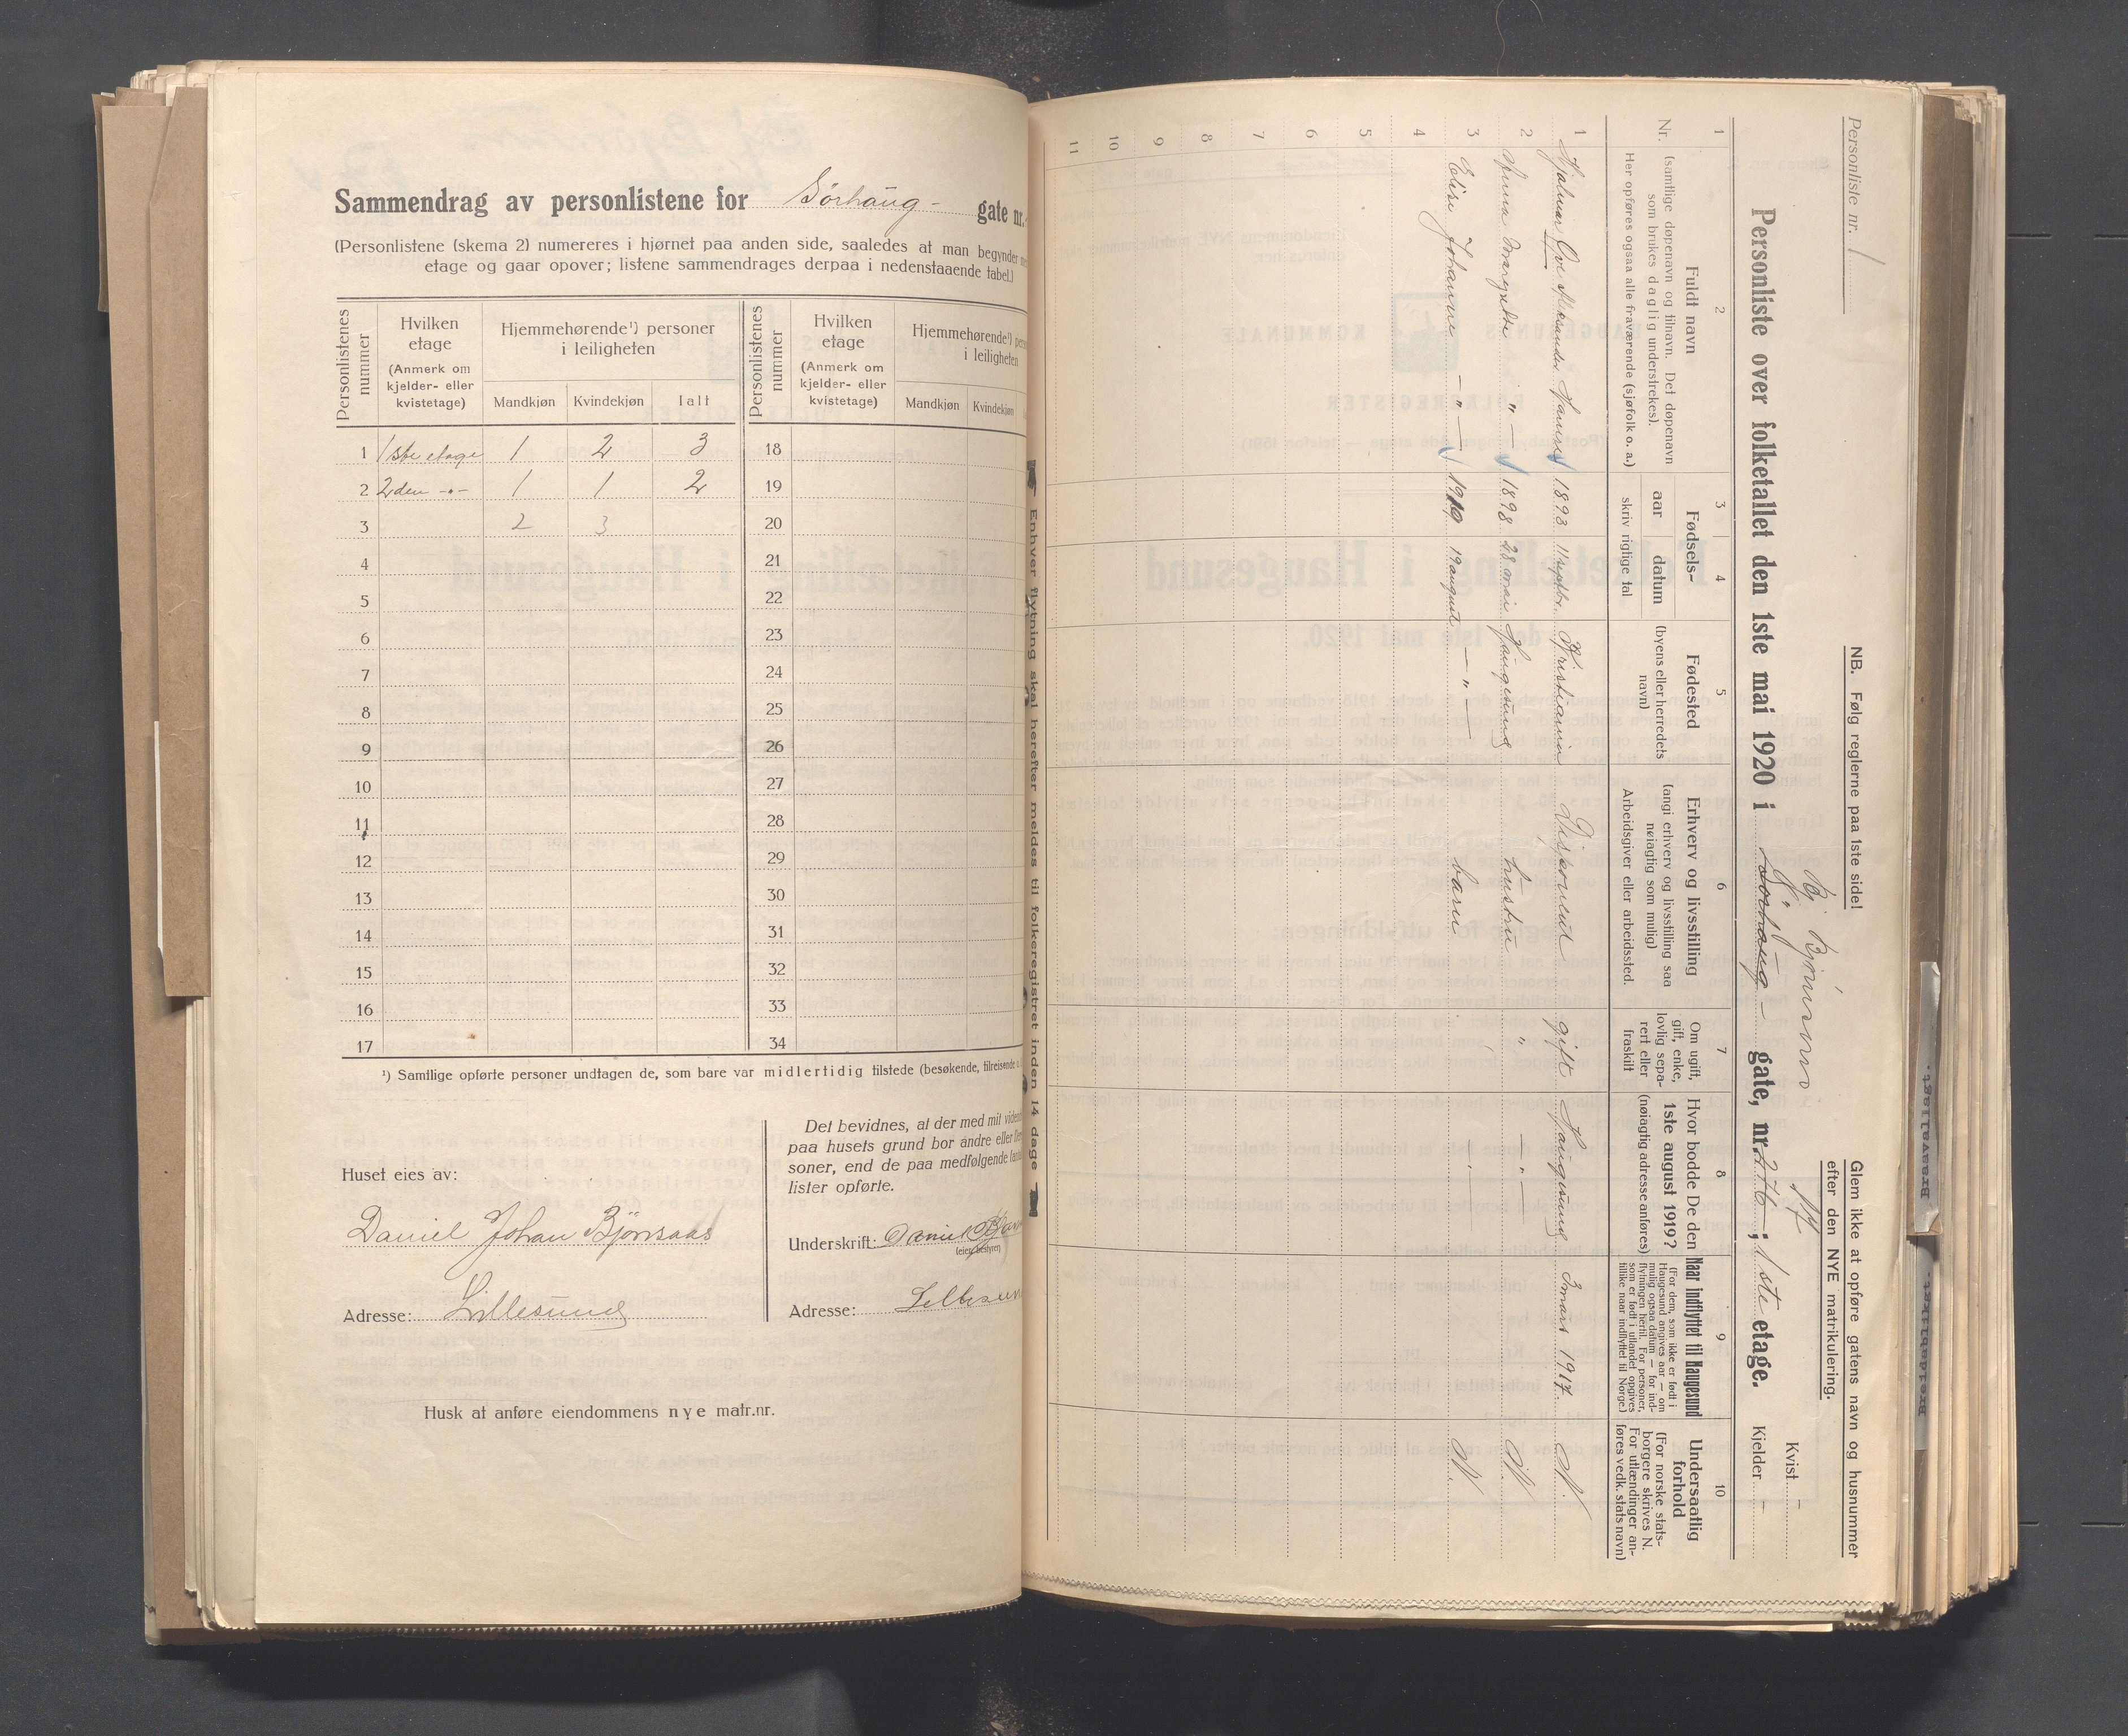 Sammendrag av personlistene for Sørhaug- gate nr.
(Personlistene (skema 2) numereres i hjørnet paa anden side, saaledes at man begynder
etage og gaar opover; listene sammendrages derpaa i nedenstaaende tabel.)
Personlistenes nummer
Hvilken etage
(Anmerk om kjelder- eller kvistetage)
Hjemmehørende¹) personer i leiligheten
Mandkjøn Kvindekjøn Ialt
Personlistenes nummer
Hvilken etage
(Anmerk om kjelder- eller kvistetage)
Hjemmehørende¹)
i leiligheten
Mandkjøn Kvindekjøn
1 1ste etage 1 2 3 18
2 2den -"- 1 1 2 19
3 2 3 20
4 21
5 22
6 23
7 24
8 25
9 26
10 27
11 28
12 29
13 30
14 31
15 32
16 33
17 34
¹) Samtlige opførte personer undtagen de, som bare var midlertidig tilstede (besøkende, tilreisende
Huset eies av:
Daniel Johan Bjørnsaas
Adresse: Lillesund
Det bevidnes, at der med mit
paa husets grund bor andre eller
soner, end de paa medfølgende
lister opførte.
Underskrift: Daniel
(eier, bestyrer)
Adresse:
Husk at anføre eiendommens nye matr.nr.
Personliste nr. 1
NB. Følg reglerne paa 1ste side!
Glem ikke at opføre gatens navn og husnummer
efter den NYE matrikulering.
17
Kvist –
Personliste over folketallet den 1ste mai 1920 i Sørhaug- gate, nr. 276 –; 1ste etage. Kjelder –
1 2 3 4 5 6 7 8 9 10
Nr.
Fuldt navn
(samtlige døpenavn og tilnavn. Det døpenavn
som brukes daglig understrekes).
Her opføres ogsaa alle fraværende (sjøfolk o. a.)
Fødsels-
aar datum
skriv riglige tal
Fødested
(byens eller herredets
navn)
Erhverv og livsstilling
(angi erhverv og livsstilling saa
nøiagtig som mulig)
Arbeidsgiver eller arbeidssted.
Om ugift,
gift, enke,
lovlig sepa-
rert eller
fraskilt
Hvor bodde De den
1ste august 1919?
(nøiagtig adresse anføres)
Naar indflyttet til Haugesund
(For dem, som ikke er født i
Haugesund angives aar — om
mulig ogsaa datum — for ind-
flytningen hertil. For personer,
som er født i utlandet opgives
tillike naar indflyttet til Norge.)
Undersaatlig
forhold
(For norske stats-
borgere skrives N.
For utlændinger an-
føres vedk. stats navn)
1 Hjalmar Ove Aleksander Hansen 1893 11 septbr. Kristiania Disponent gift Haugesund 3 mars 1917 N.
2 Anna Margrethe " — 1898 28 mai Haugesund hustru " — " — N.
3 Elise Johanne — " — 1919 19 august — " — barn N.
4
5
6
7
8
9
10
11
Enhver flytning skal herefter meldes til folkeregistret inden 14 dage